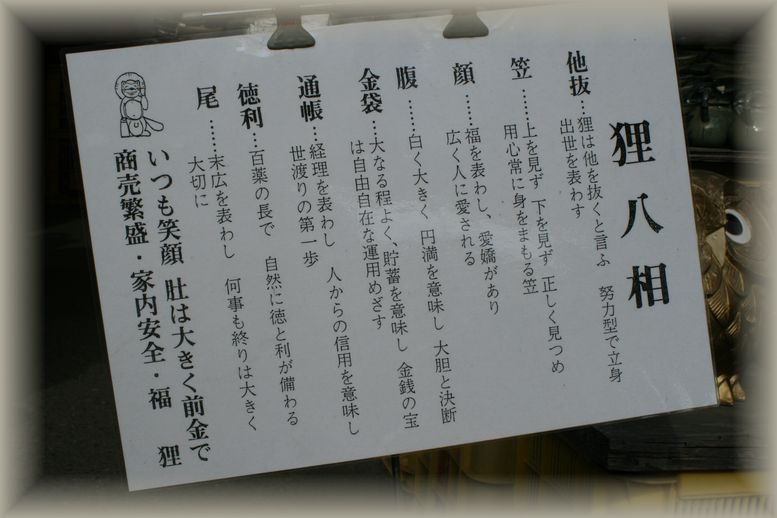 狸八相
他抜…狸は他を抜くと言ふ　努力型で立身
出世を表わす
笠……上を見ず　下を見ず　正しく見つめ
用心常に身をまもる笠
顔……福を表わし、愛嬌があり
広く人に愛される
腹……白く大きく　円満を意味し　大胆と決断
金袋…大なる程よく、貯蓄を意味し　金銭の宝
は自由自在な運用めざす
通帳…経理を表わし　人からの信用を意味し
世渡りの第一歩
徳利…百薬の長で　自然に徳と利が備わる
尾……末広を表わし　何事も終りは大きく
大切に
いつも笑顔　肚は大きく前金で
商売繁盛・家内安全・福　狸